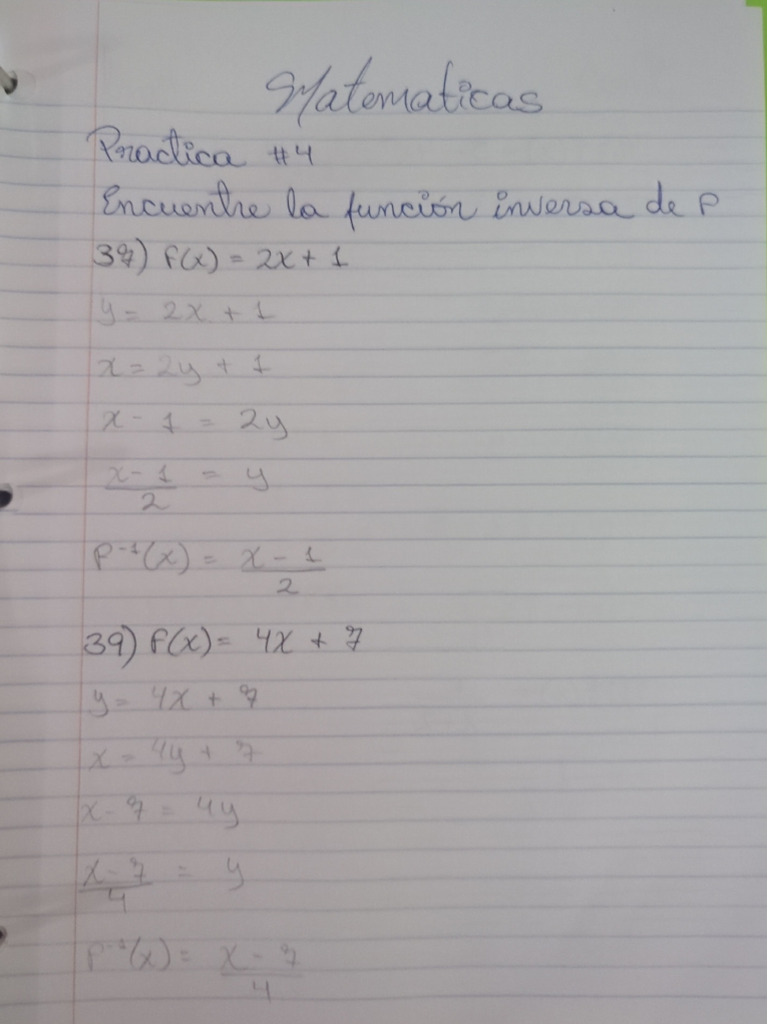 Matematicas
Practica #4
Encuentre la función inversa de f
37) f(x) = 2x + 1
y = 2x + 1
x = 2y + 1
x - 1 = 2y
x - 1 / 2 = y
f⁻¹(x) = x - 1 / 2
39) f(x) = 4x + 7
y = 4x + 7
x = 4y + 7
x - 7 = 4y
x - 7 / 4 = y
f⁻¹(x) = x - 7 / 4